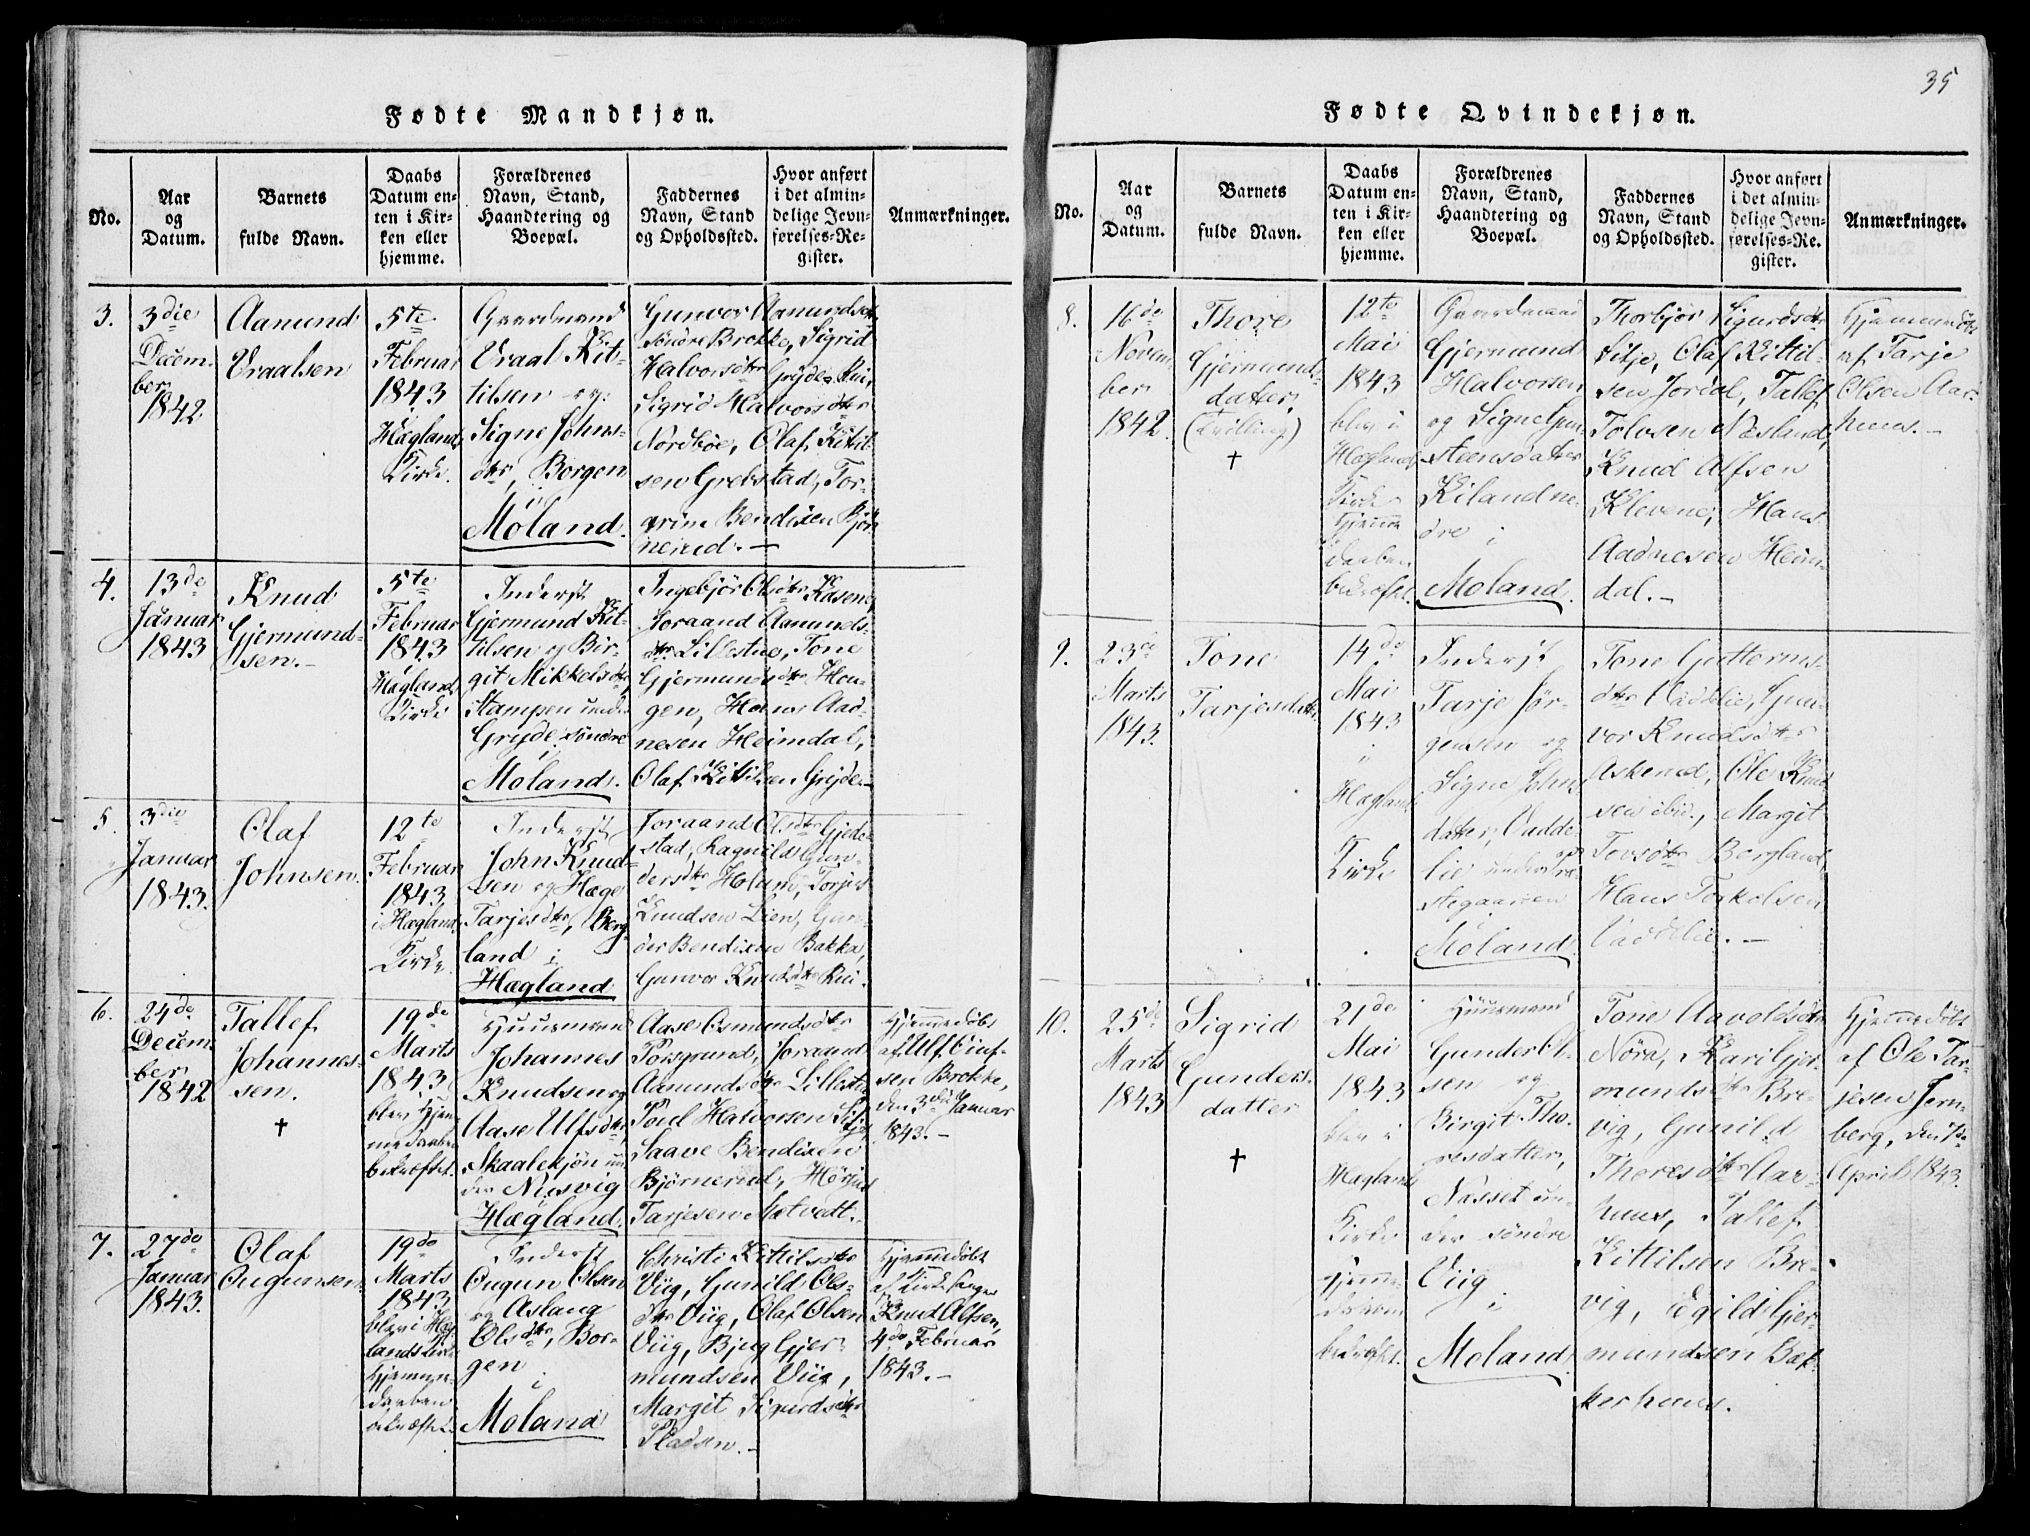 35
Fødte Mandkjøn.
No.
Aar
og
Datum.
Barnets
fulde Navn.
Daabs
Datum en-
ten i Kir-
ken eller
hjemme.
Forældrenes
Navn, Stand,
Haandtering og
Boepæl.
Faddernes
Navn, Stand
og Opholdssted.
Hvor anført
i det almin-
delige Jevn-
førelses-Re-
gister.
Anmærkninger.
3.
3die
Decem-
ber
1842
Aamund
Vraalsen
5te
Februar
1843
i
Hægland
Kirke.
Gaardmand
Vraal Kit-
tilsen og
Signe Johns-
dtr, Borgen
i
Moland.
Gunvor Aamundsdtr
søndre Brokke, Sigrid
Halvorsdtr Gryde, Rui,
Sigrid Halvorsdtr
Nordbøe, Olaf Kittil-
sen Grebstad, Tor-
grim Bendixen Bjør-
nerud.-
4.
13de
Januar
1843
Knud
Gjermund-
sen.-
5te
Februar
1843
Hægland
Kirke
Inderst
Gjermund Kit-
tilsen og Bir-
git Mikkelsdtr
Stampen under
Gryde søndre
i
Moland.
Ingebjør Olsdtr Kasene,
Joraand Aamunds-
dtr Lillestue, Tone
Gjermundsdtr Hou-
gen, Hans Aad-
nesen Heimdal,
Olaf Kittilsen Gryde.-
5.
3die
Januar
1843.
Olaf
Johnsen.
12te
Februar
1843
i Hægland
Kirke.
Inderst
John Knud-
sen og Hæge
Tarjesdtr, Berg-
land i
Hægland
Joraand Olsdtr Gjede-
stad, Ragnild Gun-
dersdtr Holand, Torjus
Knudsen Lien, Gun-
der Bendixen Bakka,
Gunvor Knudsdtr Rui.
6.
24de
Decem-
ber
1842
Tallef
Johannes-
sen.
†
19de
Marts
1843
blev Hjem-
medaaben
bekræftet.
Huusmand
Johannes
Knudsen og
Aase Ulfsdtr
Skaalekjøn un-
der Nesvig
Hægland.
Aase Osmundsdtr
Porsgrund, Joraand
Aamundsdtr Lillestue
Poul Halvorsen
Saave Bendixen
Bjørnerud,
Tarjesen Metvedt.
Hjemmedøbt
af Ulf
sen Brokke,
den 3die Januar
1843.-
7.
27de
Januar
1843.
Olaf
Ougunsen.
19de
Marts
1843
blev i Hæg-
lands Kirke
Hjemme-
daaben
bekræftet.
Inderst
Ougun Olsen
og Aslaug
Olsdtr, Bor-
gen
i
Moland
Christi Kittilsdtr
Viig, Gunild Ols-
dtr Viig, Olaf Olsen
Viig, Bjug Gjer-
mundsen Viig,
Margit Sigurdsdtr
Pladsen.-
Hjemmedøbt
af Kirkesanger
Knud Alfsen,
4de Februar
1843.-
Fødte Qvindekjøn.
No.
Aar
og
Datum.
Barnets
fulde Navn.
Daabs
Datum en-
ten i Kir-
ken eller
hjemme.
Forældrenes
Navn, Stand,
Haandtering og
Boepæl.
Faddernes
Navn, Stand
og Opholdssted.
Hvor anført
i det almin-
delige Jevn-
førelses-Re-
gister.
Anmærkninger.
8.
16de
Novem-
ber
1842.
Thore
Gjermunds-
datter,
(Tvilling)
†
12te
Mai
1843
blev i
Hægland
Kirke
Hjemme
daaben
bekræftet.
Gaardmand
Gjermund
Halvorsen
og Signe Gun-
steensdatter
Kiland ne-
dre i
Moland.
Thorbjør Sigurdsdtr
Silje, Olaf Kittil-
sen Jordal, Tallef
Tolvsen Næsland,
Knud Alfsen
Klevene, Hans
Aadnesen Heim-
dal.-
Hjemmedøbt
af Tarje
Olsen Aar-
huus.-
9.
23de
Marts
1843.
Tone
Tarjesdatter
14de
Mai
1843
i
Hægland
Kirke
Inderst
Tarje Jør-
gensen og
Signe John-
datter, Vadde-
lie under
stegaarden
i
Moland.
Tone Guttorms-
dtr Vaddelie, Gun-
vor Knudsdtr
Askerud, Ole Knud-
sen ibid., Margit
Tovsdtr Bergland,
Hans Torkelsen
Vaddelie.-
10.
25de
Marts
1843
Sigrid
Gunders-
datter
†
21de
Mai
1843
blev i
Hægland
Kirke
Hjemme-
daaben
bekræftet.
Huusmand
Gunder Ol-
sen og
Birgit Tho-
resdatter,
Næsset un-
der søndre
Viig
i
Moland.
Tone Aavoldsdtr
Nöra, Kari Gjer-
mundsdtr Bre-
vig, Gunild
Thoresdtr Aar-
huus, Tallef
Kittilsen Bre-
vig, Egild Gjer-
mundsen Bæk-
kerhuus.
Hjemmedøbt
af Ole Tar-
jesen Jern-
berg, den 1de
April 1843.